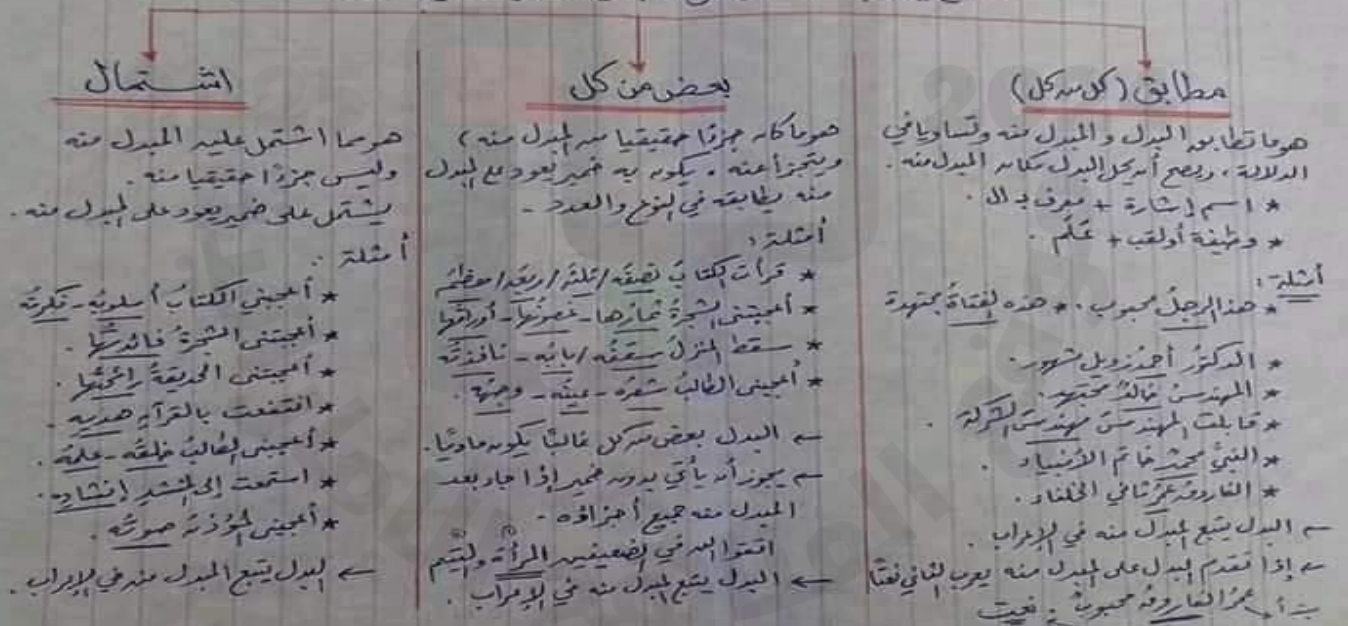 مطابق (كل من كل)
هو ما تطابق البدل والمبدل منه وتساويا في
الدلالة، ويصح أن يحل البدل مكان المبدل منه.
* اسم إشارة + معرف بـ ال.
* وظيفة أو لقب + عَلَم.
أمثلة:
* هذا الرجلُ محبوب. * هذه الفتاةُ مجتهدة
* الدكتورُ أحمدُ زويل مشهور.
* المهندسُ خالدٌ مجتهد.
* قابلت المهندسَ مهندسَ الشركة.
* النبيُّ محمدٌ خاتم الأنبياء.
* الفاروقُ عمرُ ثاني الخلفاء.
← البدل يتبع المبدل منه في الإعراب.
← إذا تقدم البدل على المبدل منه يعرب الثاني نعتًا
عمرُ الفاروقُ محبوبٌ. نعت
بعض من كل
هو ما كان جزءًا حقيقيا من المبدل منه،
ويتجزأ عنه، يكون به ضمير يعود على المبدل
منه يطابقه في النوع والعدد.
أمثلة:
* قرأت الكتابَ نصفَه/ثلثَه/ربعَه/معظمَه
* أعجبتني الشجرةُ ثمارُها - غصونُها - أوراقُها
* سقط المنزلُ سقفُه/بابُه - نافذتُه
* أعجبني الطالبُ شعرُه - عينُه - وجهُه.
← البدل بعض من كل غالبًا يكون ماديًا.
← يجوز أن يأتي بدون ضمير إذا جاء بعد
المبدل منه جميع أجزاؤه -
اتقوا الله في الضعيفين المرأة واليتيم
← البدل يتبع المبدل منه في الإعراب.
اشتمال
هو ما اشتمل عليه المبدل منه
وليس جزءًا حقيقيا منه.
يشتمل على ضمير يعود على المبدل منه.
أمثلة:
* أعجبني الكتابُ أسلوبُه - فكرتُه
* أعجبتني الشجرةُ فائدتُها.
* أعجبتني الحديقةُ رائحتُها.
* انتفعت بالقرآنِ هديِه.
* أعجبني الطالبُ خلقُه - علمُه.
* استمعت إلى المنشدِ إنشادِه.
* أعجبني المؤذنُ صوتُه.
← البدل يتبع المبدل منه في الإعراب.